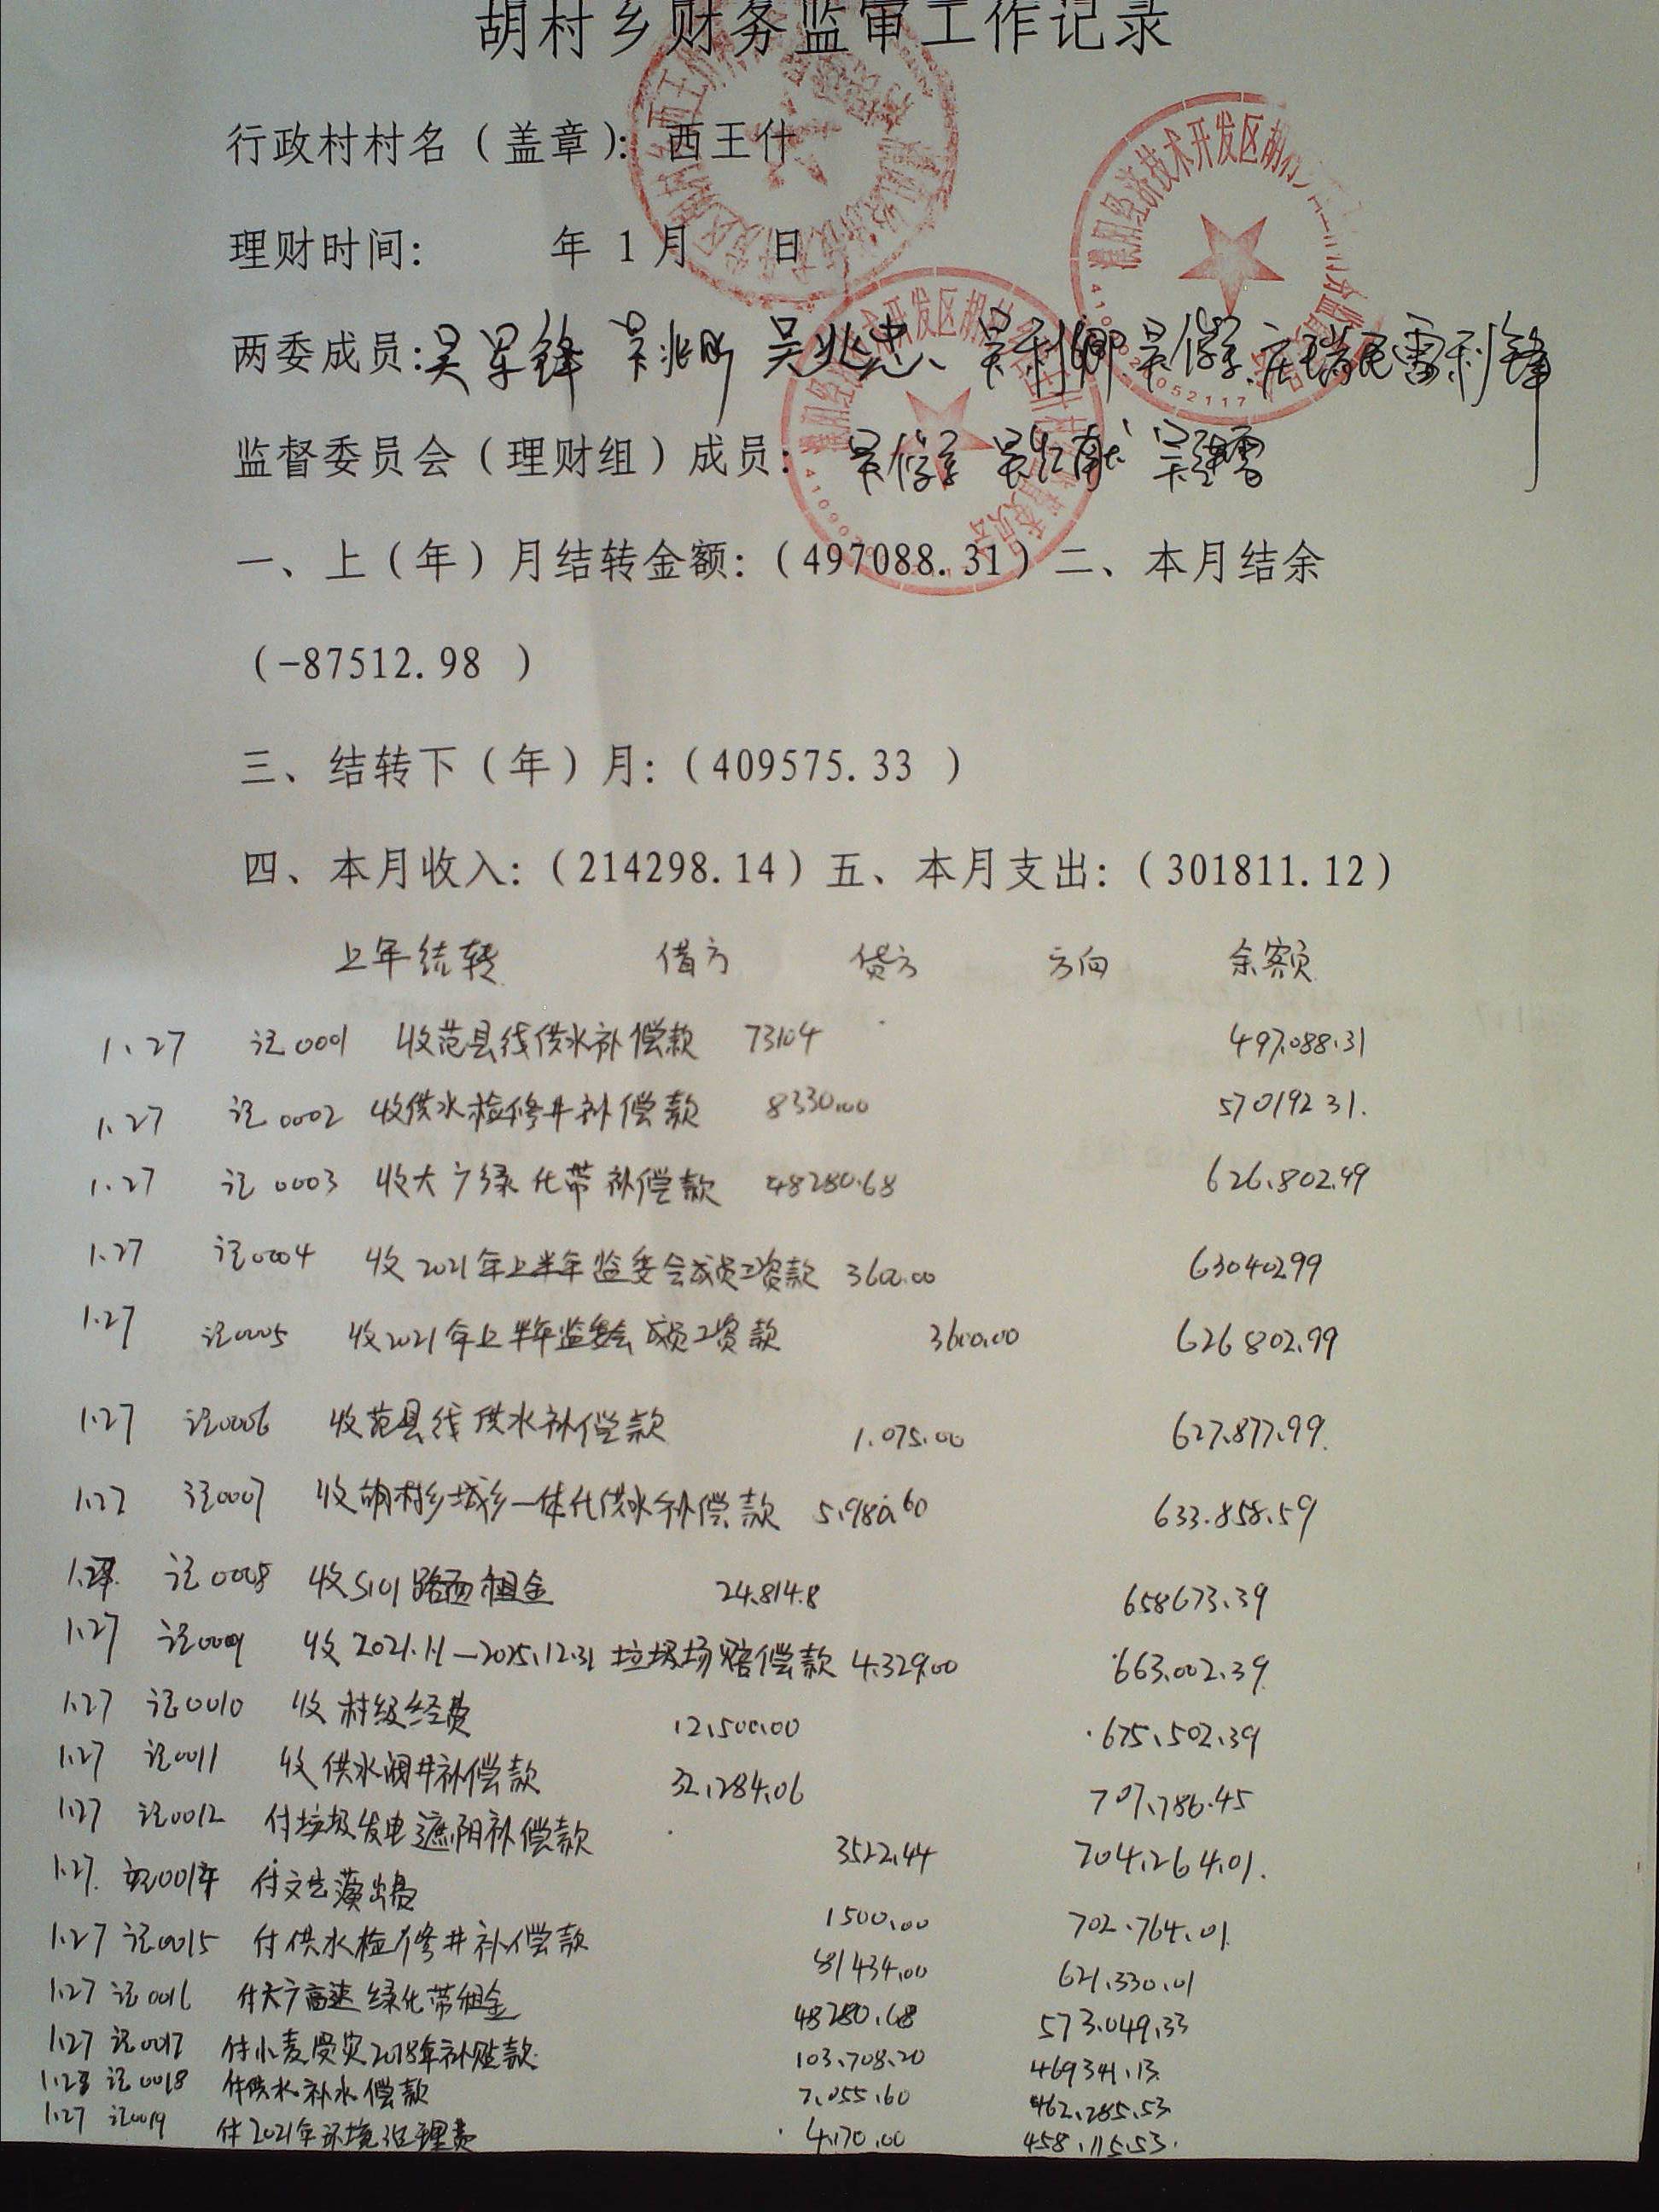 胡村乡财务监审工作记录
行政村村名（盖章）：西王什
理财时间： 年 1 月 日
两委成员：吴兆忠、吴利卿 吴俊 雷利锋
监督委员会（理财组）成员：吴俊
一、上（年）月结转金额：（497088.31）二、本月结余
（-87512.98 ）
三、结转下（年）月：（409575.33 ）
四、本月收入：（214298.14）五、本月支出：（301811.12）
上年结转 借方 贷方 方向 余额
1.27 记0001 收范县线供水补偿款 73104 497.088.31
1.27 记0002 收供水检修井补偿款 8330.00 570192 31.
1.27 记0003 收大广绿化带补偿款 48280.68 626.802.99
1.27 记0004 收2021年上半年监委会成员工资款 3600.00 630402.99
1.27 记0005 收2021年上半年监委会成员工资款 3600.00 626802.99
1.27 记0006 收范县线供水补偿款 1.075.00 627.877.99.
1.27 记0007 收胡村乡城乡一体化供水补偿款 5.980.60 633.858.59
1.27 记0008 收S101路面租金 24.814.8 658673.39
1.27 记0009 收2021.1.1—2025.12.31垃圾场赔偿款 4.329.00 663.002.39
1.27 记0010 收村级经费 12.500.00 675.502.39
1.27 记0011 收供水阀井补偿款 32.284.06 707.786.45
1.27 记0012 付垃圾发电遮阴补偿款 3522.44 704.264.01.
1.27. 记001 付文艺演出费 1500.00 702.764.01
1.27 记0015 付供水检修井补偿款 81434.00 621.330.01
1.27 记0016 付大广高速绿化带租金 48280.68 573.049.33
1.27 记0017 付小麦受灾2018年补贴款 103.708.20 469341.13.
1.27 记0018 付供水补水偿款 7.055.60 462.285.53
1.27 记0019 付2021年环境治理费 4.170.00 458.115.53.